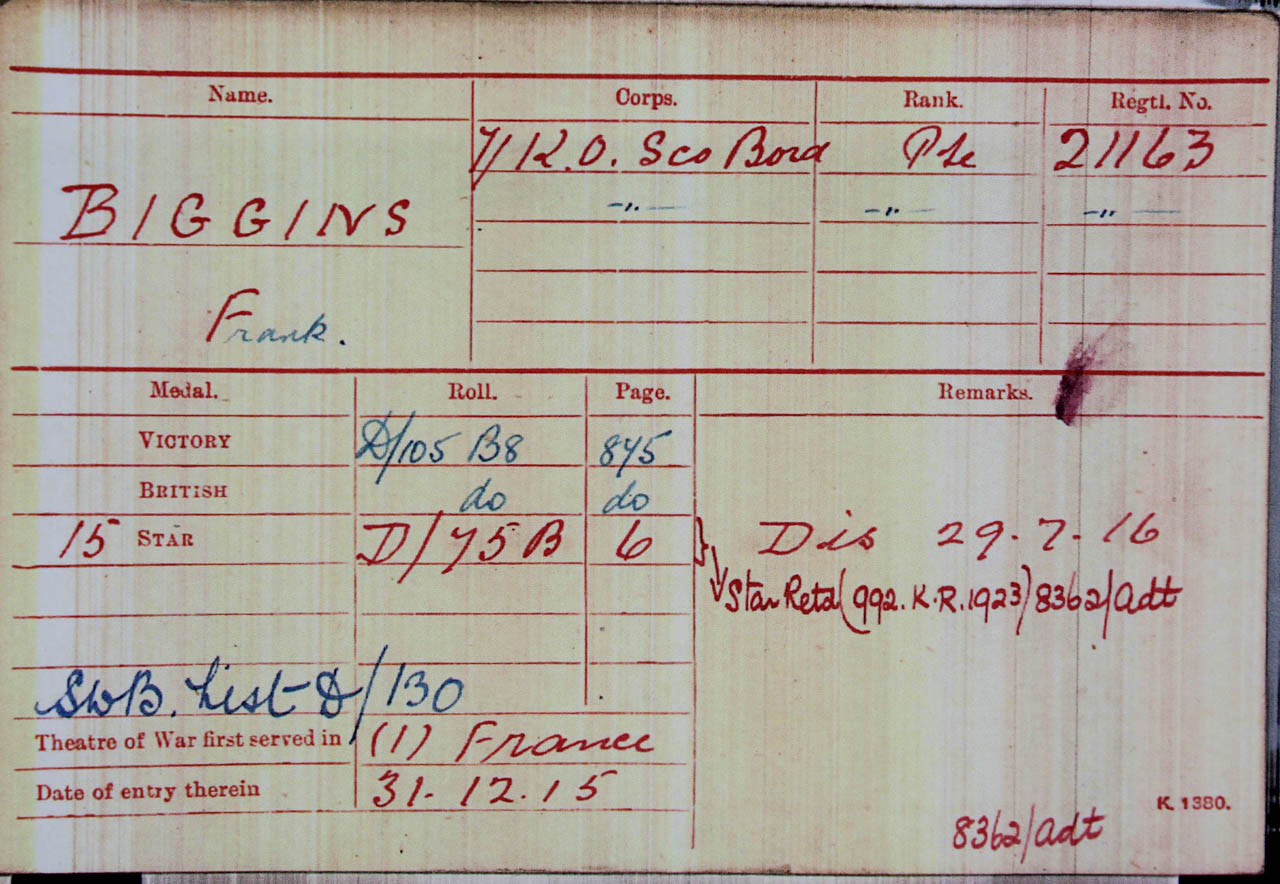 Name. Corps. Rank. Regtl. No.
7/K.O. Sco Bord Pte 21163
BIGGINS -"- -"- -"-
Frank.
Medal. Roll. Page. Remarks.
VICTORY D/105 B8 875
BRITISH do do
15 STAR D/75B 6 Dis 29.7.16
Star Retd (992. K.R. 1923) 8362/Adt
SWB. List D/130
Theatre of War first served in (1) France
Date of entry therein 31.12.15
K. 1380.
8362/Adt